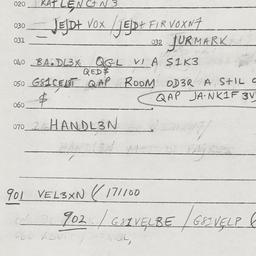 020 KAT LENCIN3
030 JEJD+ VOX / JEJD+ FIRVOXN4
031 — 032 JURMARK
040 BA.DL3X QGL VIA S1K3
QED$
050 GS1CELT QAP ROOM OD3R A S+IL
060 $ QAP JA-NK1F 3V
070 HANDL3N
901 VEL3XN ( 171100
902 / GS1VELBE / GS1VELP